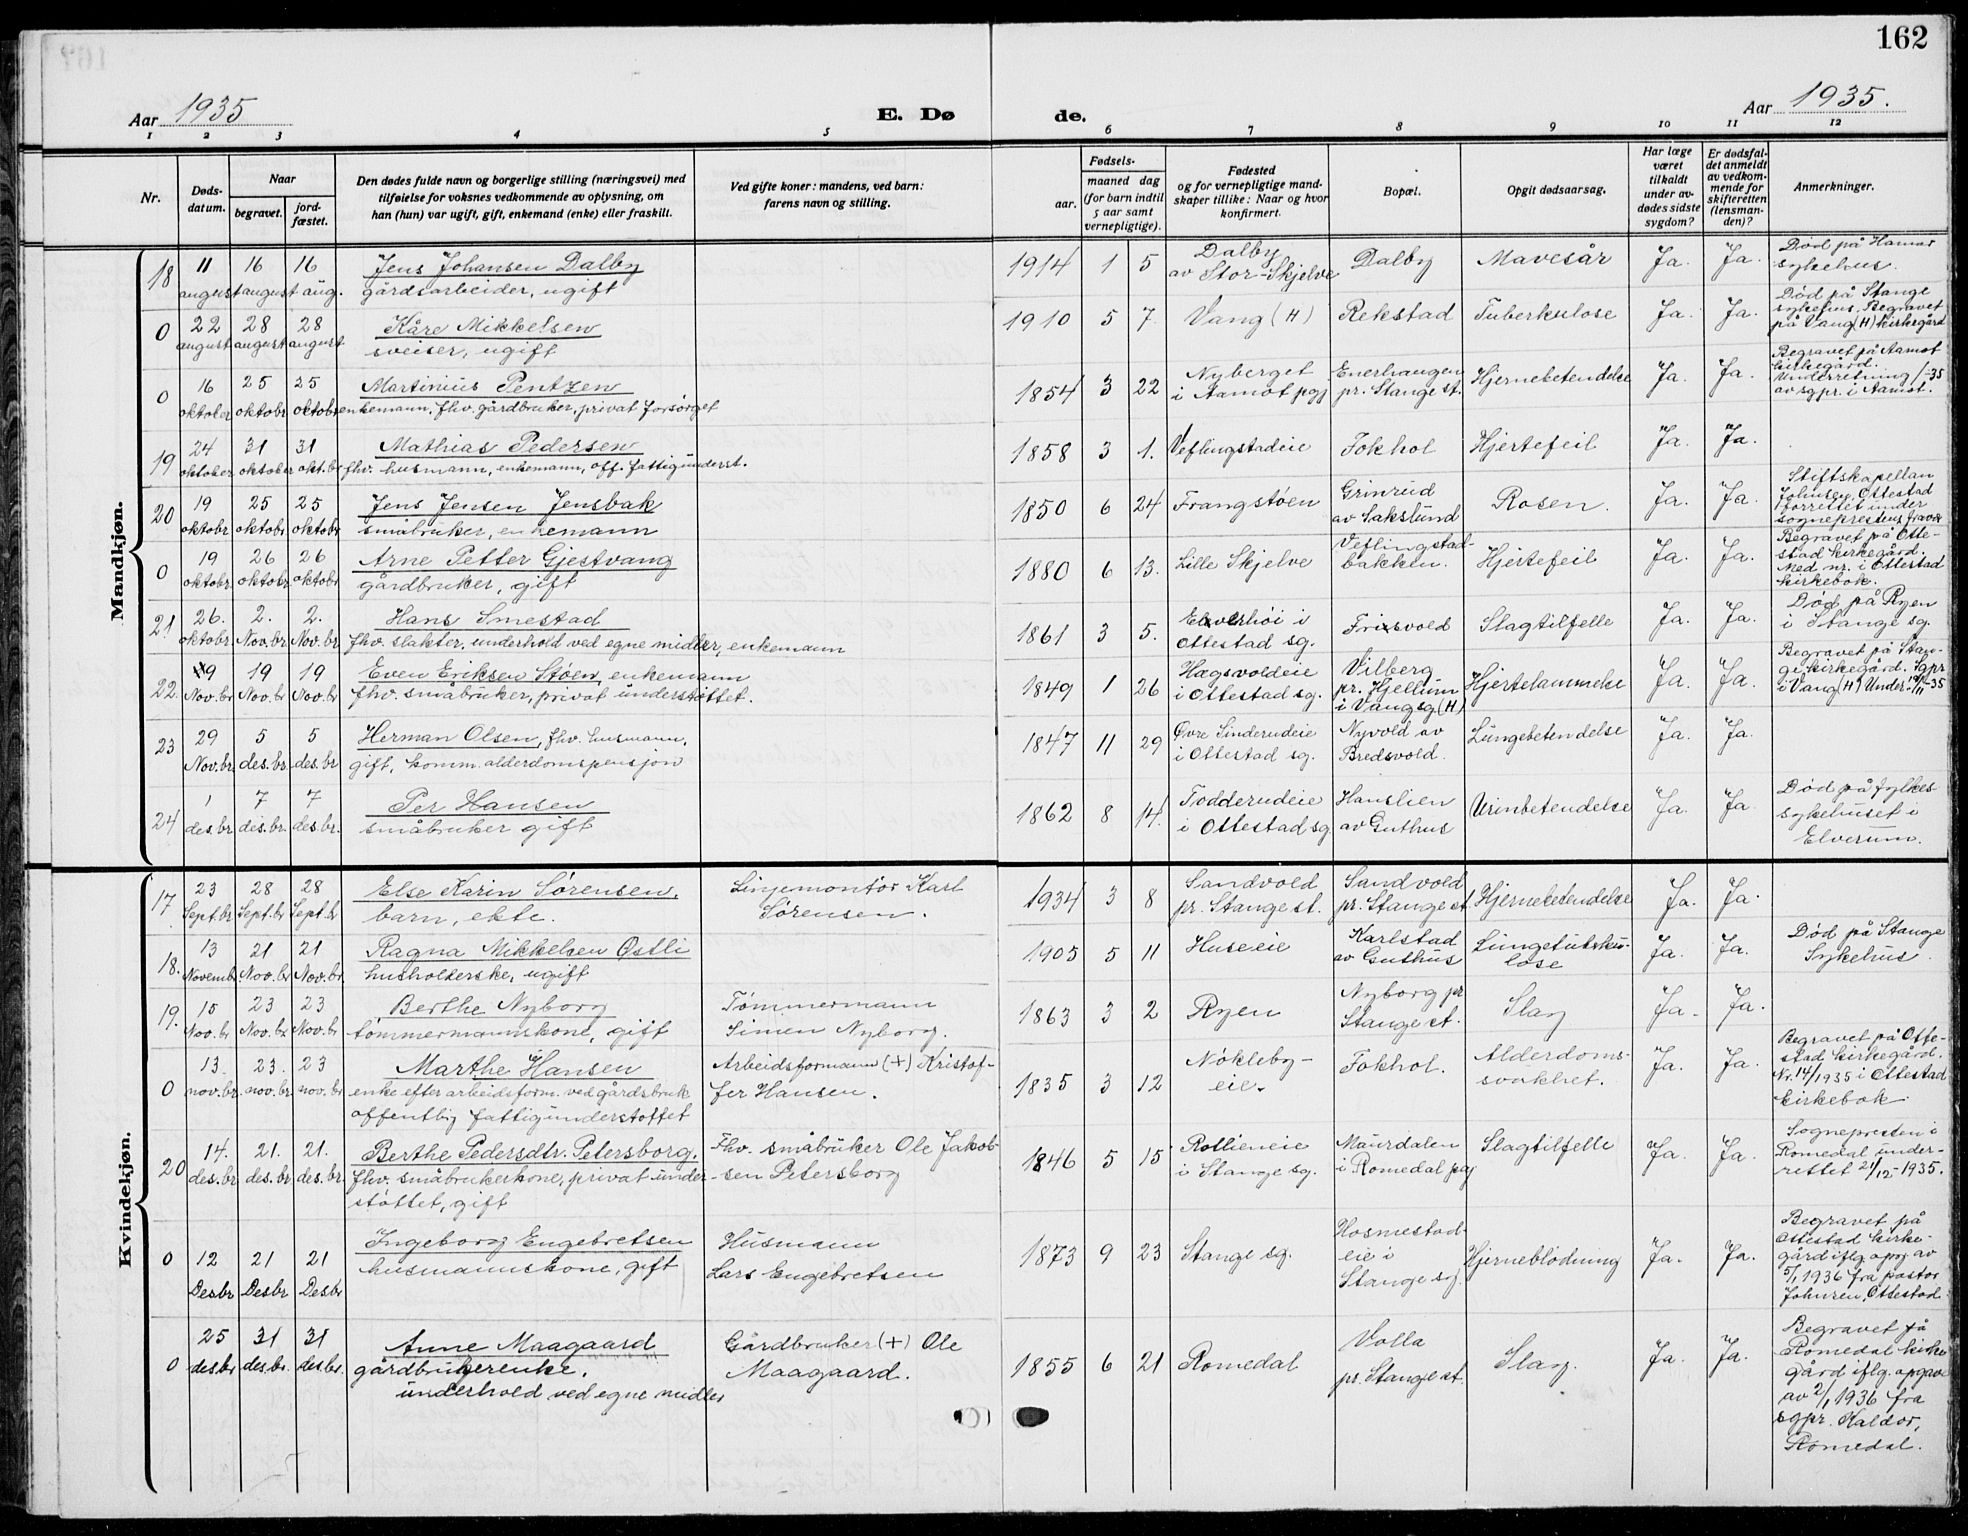 162
Aar 1935
E. Dø
de.
Aar 1935.
1 2 3 4 5 6 7 8 9 10 11 12
Nr.
Døds-
datum.
Naar
begravet.
jord-
fæstet.
Den dødes fulde navn og borgerlige stilling (næringsvei) med
tilføielse for voksnes vedkommende av oplysning, om
han (hun) var ugift, gift, enkemand (enke) eller fraskilt.
Ved gifte koner: mandens, ved barn:
farens navn og stilling.
Fødsels-
aar.
maaned dag
(for barn indtil
5 aar samt
vernepligtige).
Fødested
og for vernepligtige mand-
skaper tillike: Naar og hvor
konfirmert.
Bopæl.
Opgit dødsaarsag.
Har læge
været
tilkaldt
under av-
dødes sidste
sygdom?
Er dødsfal-
det anmeldt
av vedkom-
mende for
skifteretten
(lensman-
den)?
Anmerkninger.
Mandkjøn.
18 11 16 16 Jens Johansen Dalby 1914 1 5 Dalby Dalby Mavesår Ja. Ja. Død på Hamar
august august aug. gårdsarbeider, ugift av Stor-Skjelve sykehus.
0 22 28 28 Kåre Mikkelsen 1910 5 7 Vang (H) Rekstad Tuberkulose Ja. Ja. Død på Stange
august august august sveiser, ugift sykehus. Begravet
på Vang (H) kirkegård
0 16 25 25 Martinius Pentzen 1854 3 22 Nyberget Enerhaugen Hjernebetendelse Ja. Ja. Begravet på Aamot
oktober oktobr oktobr enkemann, fhv. gårdbruker, privat forsørget i Aamot pgj pr. Stange st. kirkegård.
Underretning /-35
av sgpr. i Aamot.
19 24 31 31 Mathias Pedersen 1858 3 1. Veflingstadeie Fokhol Hjertefeil Ja. Ja.
oktober oktober okt.br fhv. husmann, enkemann, off. fattigunderst.
20 19 25 25 Jens Jensen Jensbak 1850 6 24 Frangstøen Grinrud Rosen. Ja. Ja. Stiftskapellan
oktobr oktobr oktobr småbruker, enkemann av Sakslund Johnsen, Ottestad
forrettet under
sogneprestens fravær
0 19 26 26 Arne Petter Gjestvang 1880 6 13. Lille Skjelve Veflingstad- Hjertefeil Ja. Ja. Begravet på Otte-
oktobr oktobr oktobr gårdbruker, gift bakken. stad kirkegård.
Med nr. i Ottestad
kirkebok.
21 26. 2. 2. Hans Smestad 1861 3 5. Elverhöi i Frisvold Slagtilfelle Ja. Ja. Død på Ryen
oktobr. Nov.br Nov.br fhv. slakter, underhold ved egne midler, enkemann Ottestad sg. i Stange sg.
22. 9 19 19 Even Eriksen Støen, enkemann 1849 1 26 Hagsvoldeie Vilberg Hjertelammelse Ja. Ja. Begravet på Stan-
Nov.br Nov.br Nov.br fhv. småbruker, privat understøttet. i Ottestad sg. pr. Hjellum ge kirkegård. Sgpr
i Vang sg (H) i Vang (H) Under. /11-35
23 29 5 5 Herman Olsen, fhv. husmann, 1847 11 29 Øvre Sinderudeie Nyvold av Lungebetendelse Ja. Ja.
Nov.br des.br des.br gift, komm. alderdomspensjon i Ottestad sg. Bredsvold.
24 1 7 7 Per Hansen 1862 8 14. Todderudeie Hanslien Urinbetendelse Ja. Ja. Død på fylkes
des.br des.br des.br. småbruker gift i Ottestad sg av Guthus sykehuset i
Elverum.
Kvindekjøn.
17 23 28 28 Else Karin Sørensen, Linjemontør Karl 1934 3 8 Sandvold Sandvold Hjernebetendelse Ja. Ja.
Sept.br Sept.br Sept.br barn, ekte. Sørensen. pr. Stange st. pr. Stange st
18. 13 21 21 Ragna Mikkelsen Østli 1905 5 11 Huseeie Karlstad Lungetuberku- Ja. Ja. Død på Stange
Novembr Nov.br Nov.br husholderske, ugift av Guthus lose Sykehus.
19. 15 23 23 Berthe Nyborg Tømmermann 1863 3 2 Ryen Nyborg pr Slag Ja. Ja.
Nov.br Nov.br Nov.br tømmermannskone, gift Simen Nyborg. Stange st.
0 13. 23. 23 Marthe Hansen Arbeidsformann (+) Kristof- 1835 3 12 Nøkleby- Fokhol. Alderdoms- Ja. Ja. Begravet på Otte-
nov.br nov.br nov.br enke efter arbeidsform. ved gårdsbruk fer Hansen. eie. svakhet. stad kirkegård.
offentlig fattigunderstøttet Nr. 14/1935 i Ottestad
kirkebok.
20 14. 21. 21. Berthe Pedersdtr. Petersborg. Fhv. småbruker Ole Jakob- 1846 5 15 Rollieneie Maurdalen Slagtilfelle Ja. Ja. Sognepresten i
des.br des.br des.br. fhv. småbrukerkone, privat under- sen Petersborg i Stange sg. i Romedal pgj Romedal under-
støttet, gift rettet 21/12-1935.
0 12 21 21 Ingeborg Engebretsen Husmann 1873 9 23 Stange sg. Hosmestad- Hjerneblødning Ja. Ja. Begravet på
Desbr Desbr Desbr husmannskone, gift Lars Engebretsen eie i Ottestad kirke-
Stange sg. gård iflg. opg. av
5/1 1936 fra pastor
Johnsen, Ottestad.
0 25 31 31 Anne Maagaard Gårdbruker (+) Ole 1855 6 21 Romedal Volla Slag. Ja. Ja. Begravet på
desbr des.br. desbr. gårdbrukerenke, Maagaard. pr. Stange st. Romedal kirke
underhold ved egne midler gård iflg. opgave
av 2/1 1936 fra
sgpr. Kaldor,
Romedal.